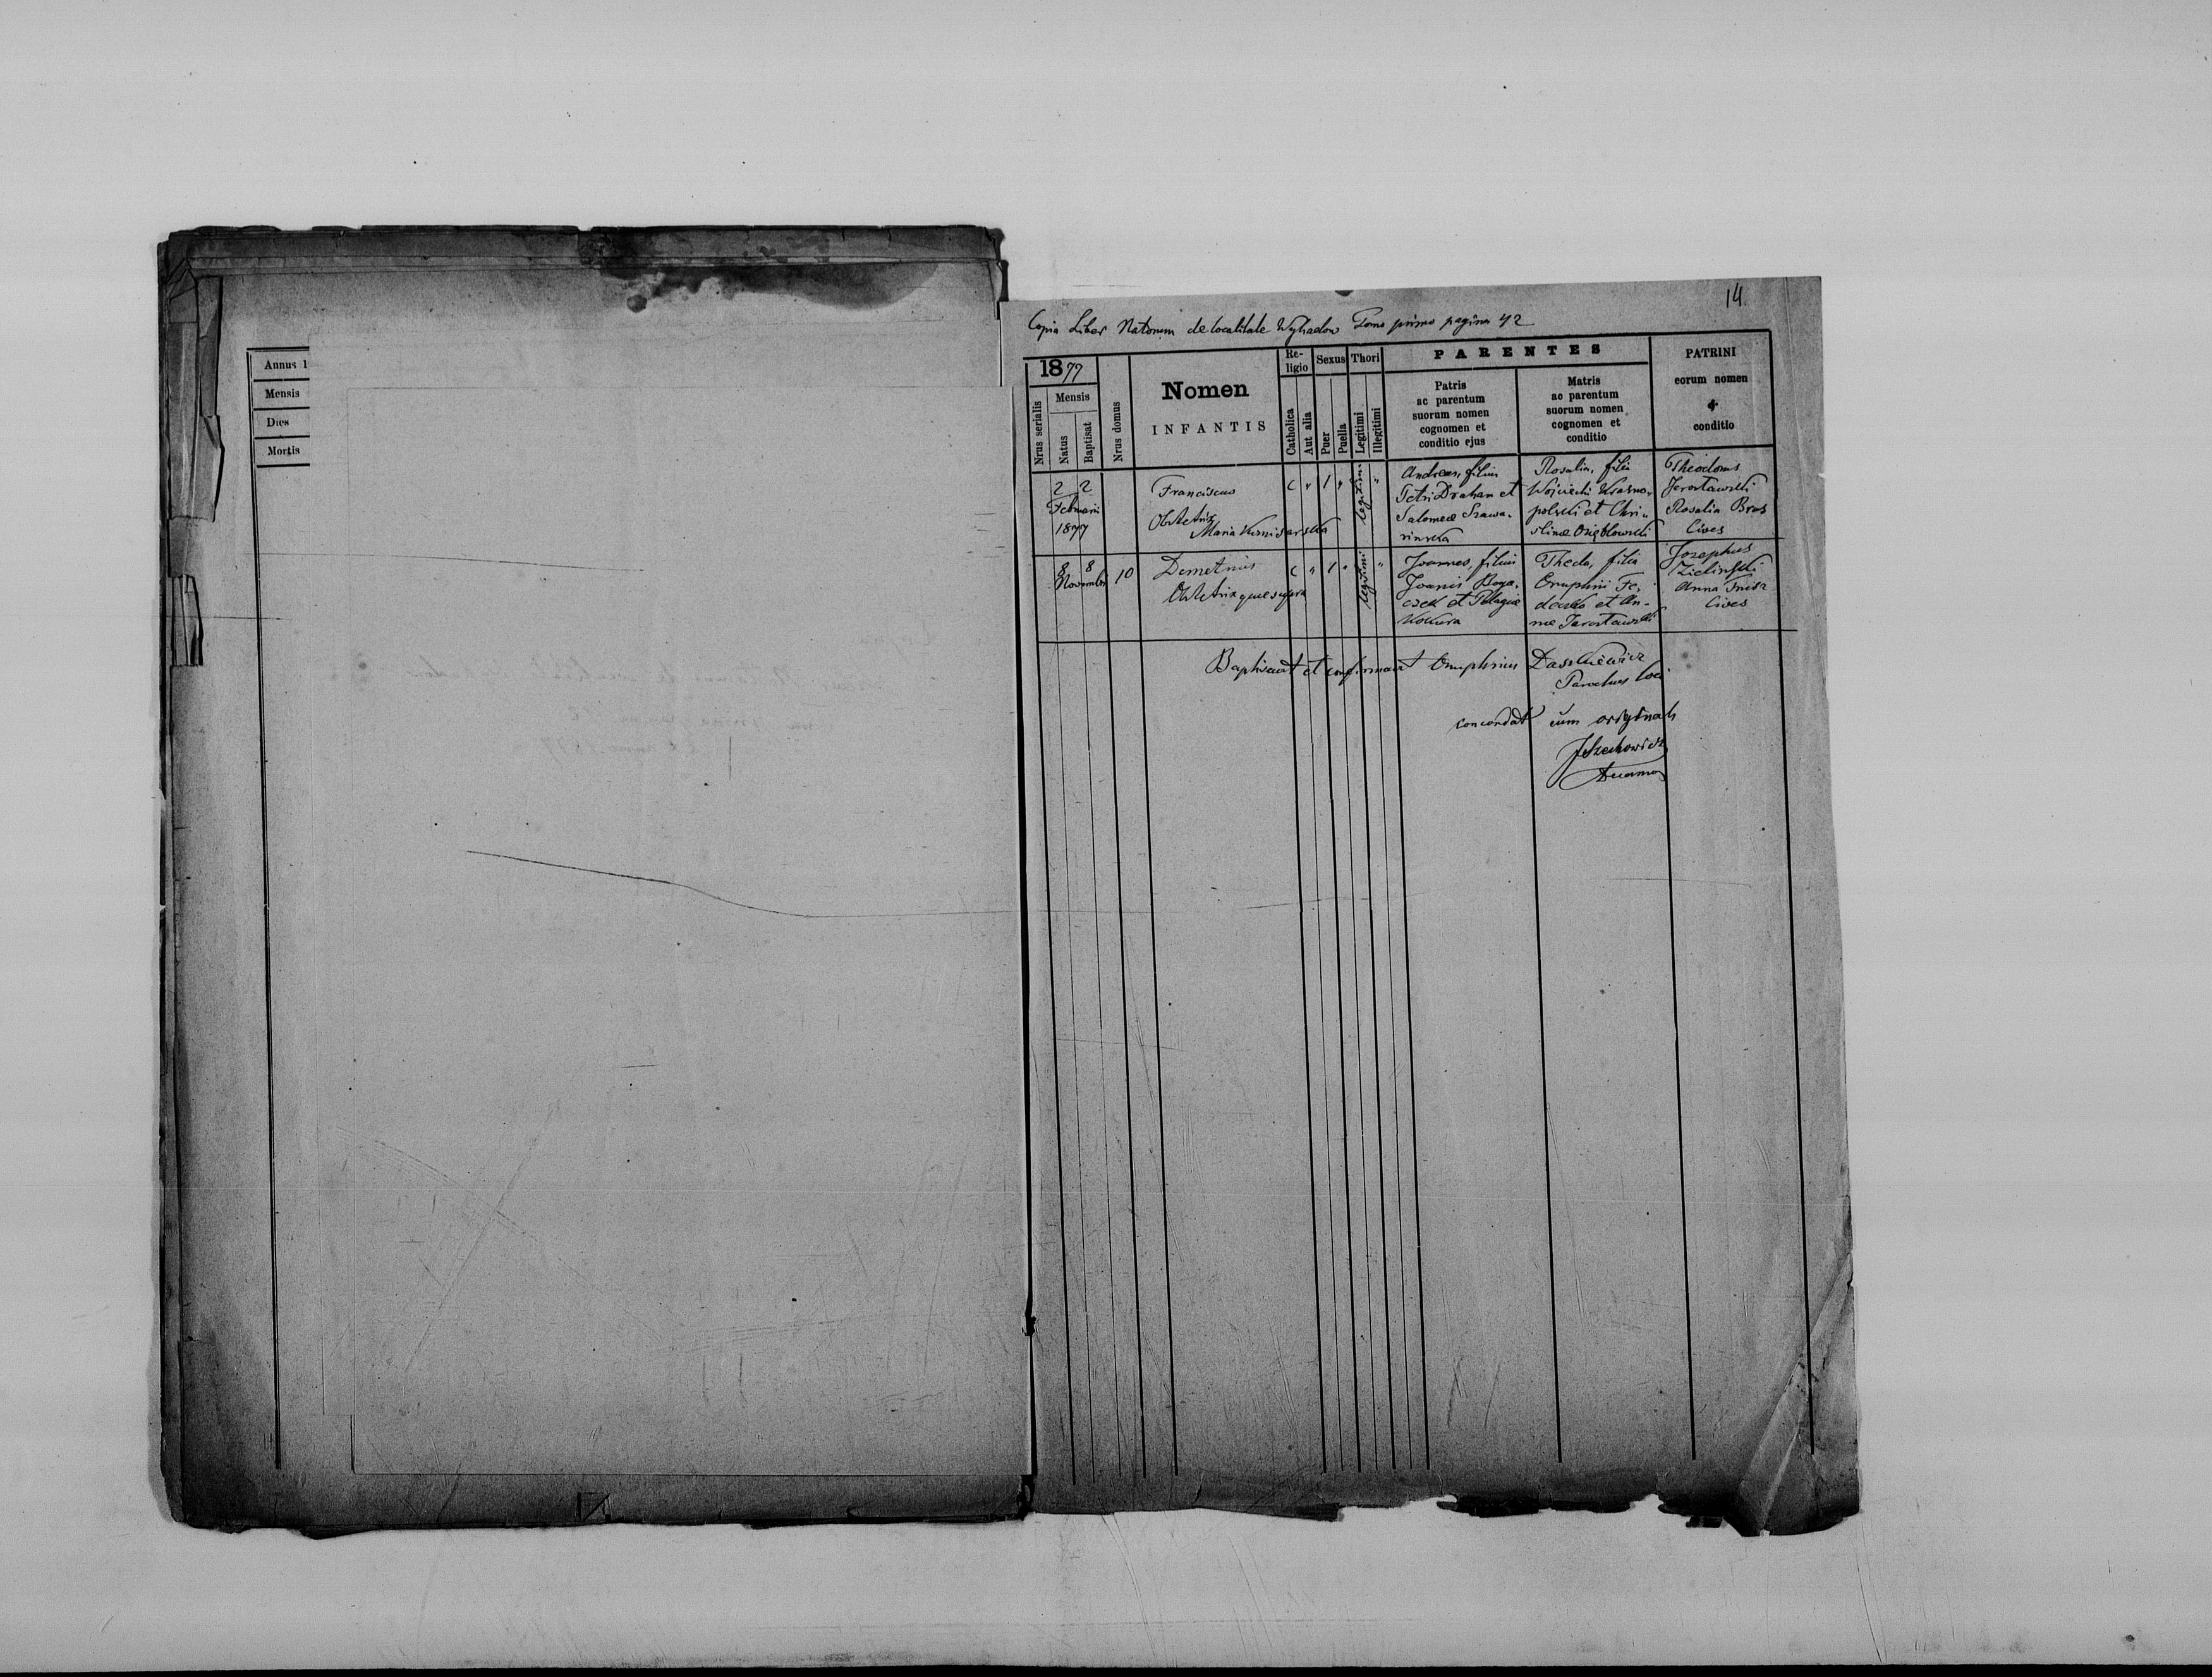 Annus 1
Mensis
Dies
Mortis
14.
Copia Liber Natorum de localitate Wyhadow Tomo primo pagina 42
1877
Mensis
Nrus serialis
Natus
Baptisat
Nrus domus
Nomen
INFANTIS
Re-
ligio
Catholica
Aut alia
Sexus
Puer
Puella
Thori
Legitimi
Illegitimi
PARENTES
Patris
ac parentum
suorum nomen
cognomen et
conditio ejus
Matris
ac parentum
suorum nomen
cognomen et
conditio
PATRINI
eorum nomen
&
conditio
2 2
Februarii
1877
Franciscus
Obstetrix
Maria
C " 1 " legitimi "
Andreas, filius
Petri Drahan et
Salomeae Szawa-
rinska
Rosalia, filia
Wojciechi Krasno-
polski et Chri-
stinae
Theodorus
Jarosławski
Rosalia Bros
Cives
8 8
Novembri
10
Demetrius
Obstetrix quae supra
C " 1 " legitimi "
Joannes, filius
Joanis Boga-
czek et Pelagiae
Kokura
Thecla, filia
Onuphrii Fe-
dasko et An-
nae Jarosławski
Josephus
Zieliński
Anna
Cives
Baptisavit et confirmavit Onuphrius Daszkiewicz
Parochus loci
concordat cum originali